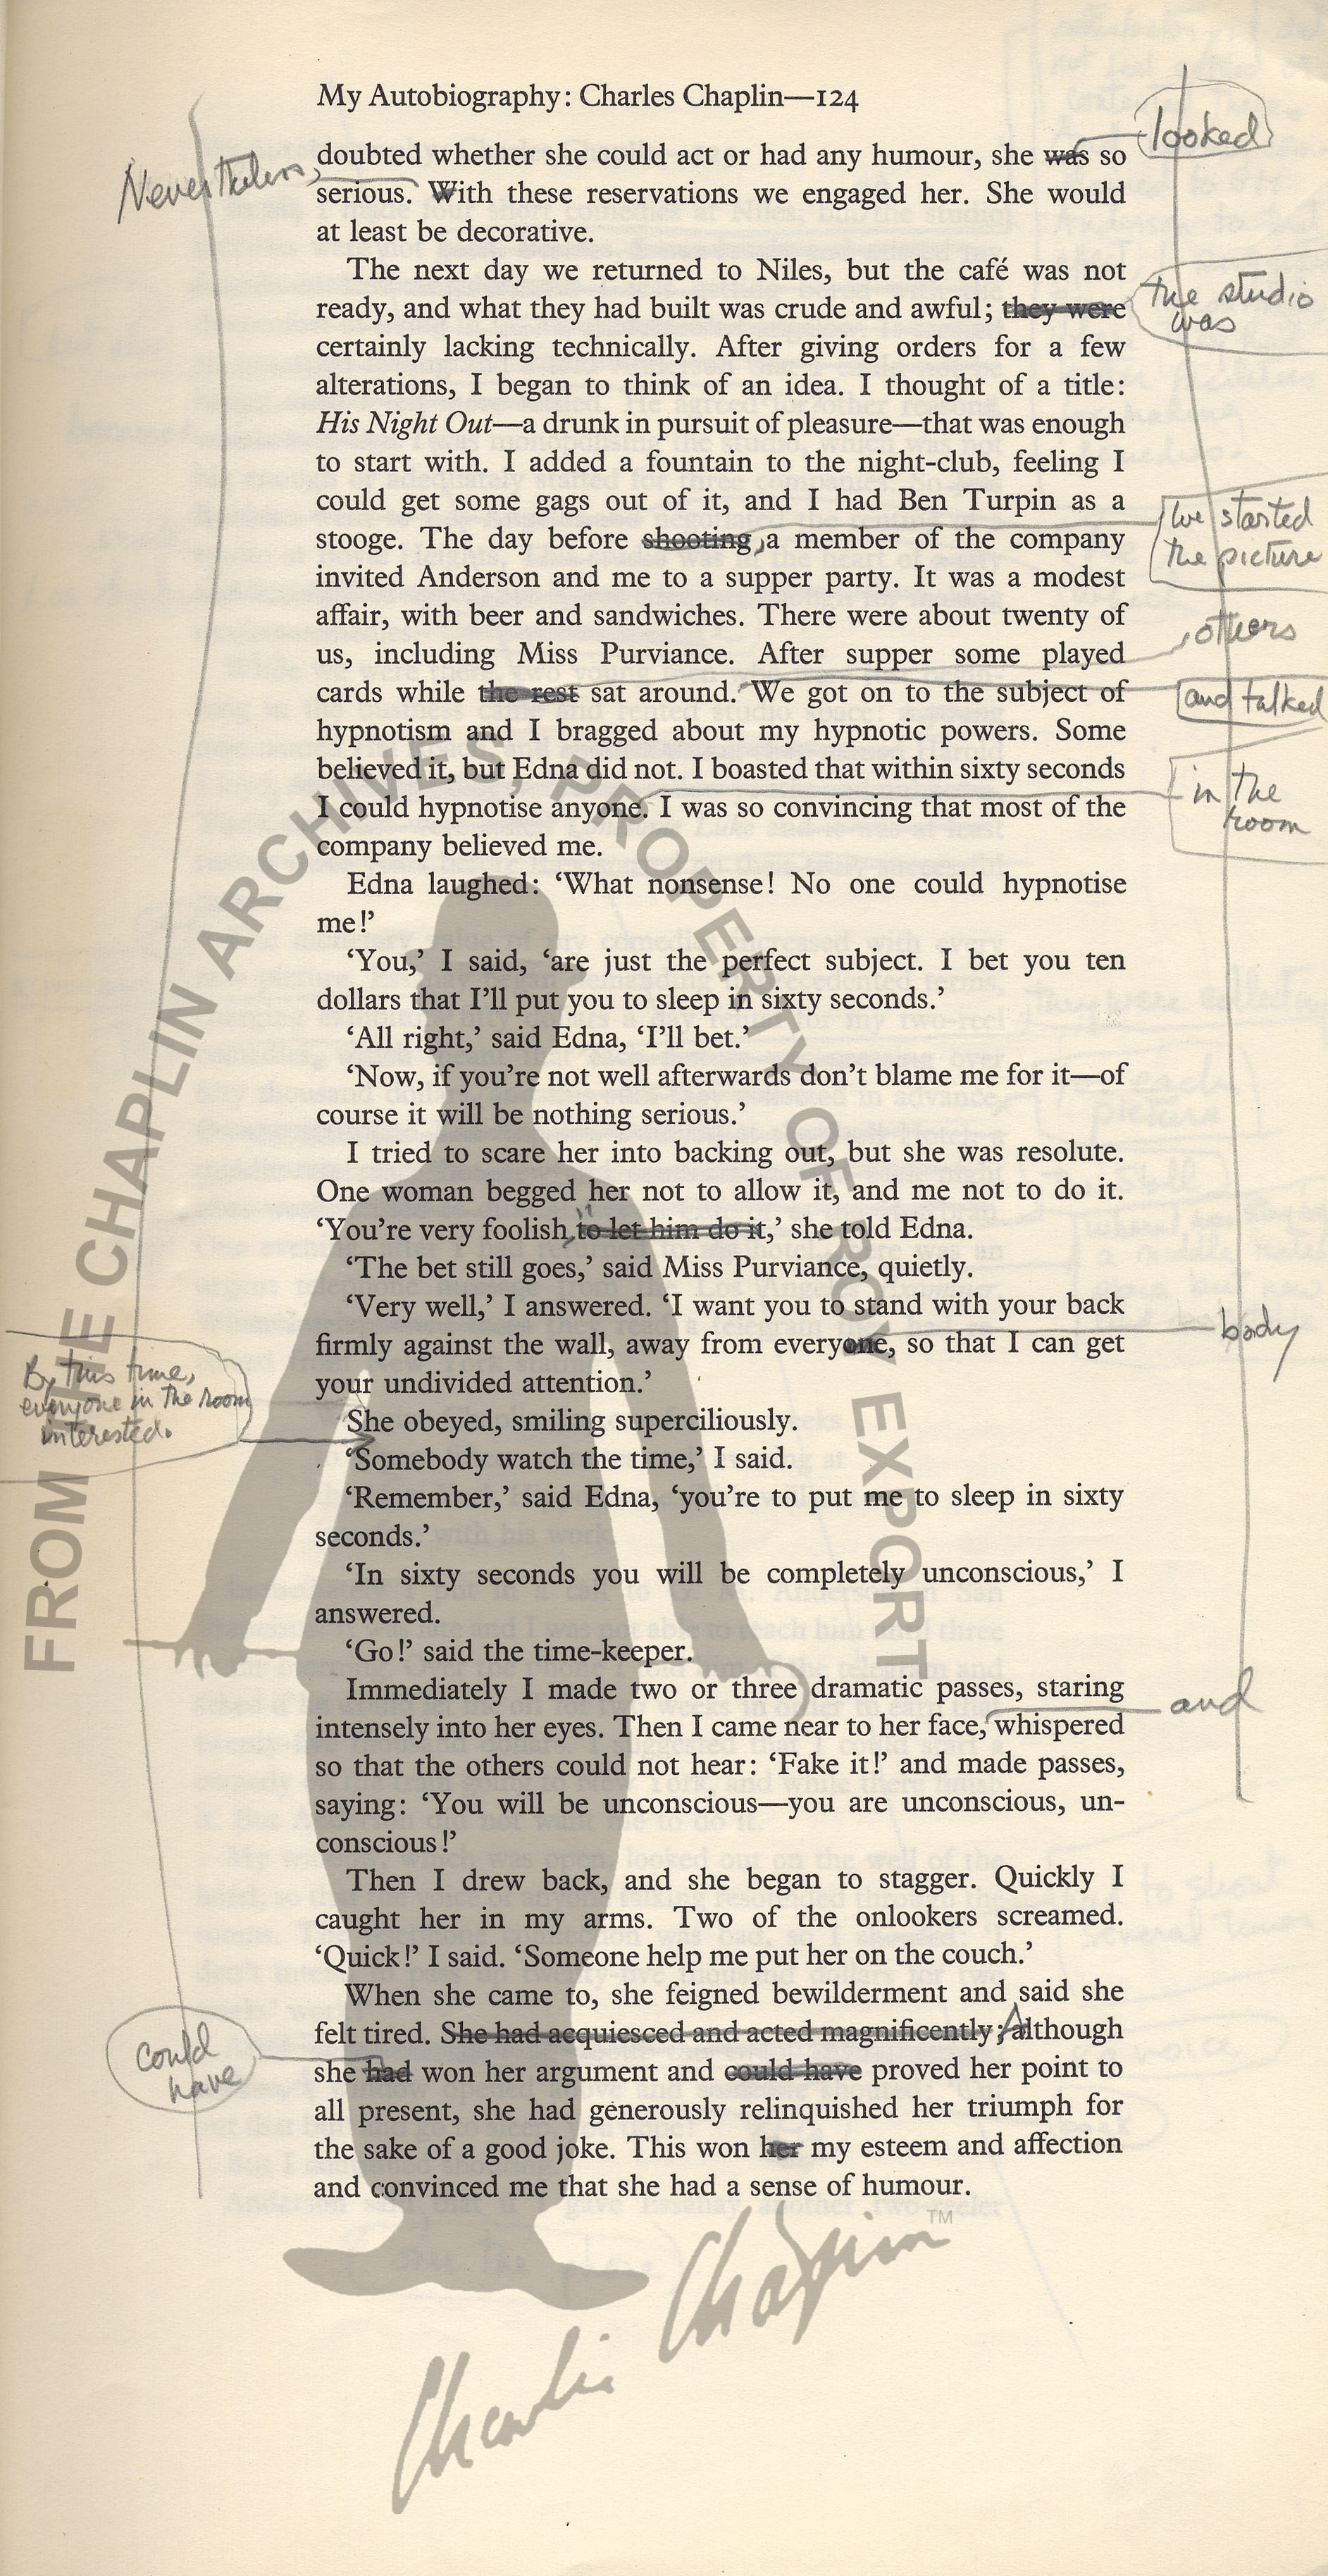 My Autobiography: Charles Chaplin—124
looked
doubted whether she could act or had any humour, she was so
Nevertheless,
serious. With these reservations we engaged her. She would
at least be decorative.
The next day we returned to Niles, but the café was not
ready, and what they had built was crude and awful; they were
the studio
was
certainly lacking technically. After giving orders for a few
alterations, I began to think of an idea. I thought of a title:
His Night Out—a drunk in pursuit of pleasure—that was enough
to start with. I added a fountain to the night-club, feeling I
could get some gags out of it, and I had Ben Turpin as a
we started
the picture
stooge. The day before shooting, a member of the company
invited Anderson and me to a supper party. It was a modest
affair, with beer and sandwiches. There were about twenty of
others
us, including Miss Purviance. After supper some played
cards while the rest sat around. We got on to the subject of
and talked
hypnotism and I bragged about my hypnotic powers. Some
believed it, but Edna did not. I boasted that within sixty seconds
in the
room
I could hypnotise anyone. I was so convincing that most of the
company believed me.
Edna laughed: ‘What nonsense! No one could hypnotise
me!’
‘You,’ I said, ‘are just the perfect subject. I bet you ten
dollars that I’ll put you to sleep in sixty seconds.’
‘All right,’ said Edna, ‘I’ll bet.’
‘Now, if you’re not well afterwards don’t blame me for it—of
course it will be nothing serious.’
I tried to scare her into backing out, but she was resolute.
One woman begged her not to allow it, and me not to do it.
‘You’re very foolish to let him do it,’ she told Edna.
‘The bet still goes,’ said Miss Purviance, quietly.
‘Very well,’ I answered. ‘I want you to stand with your back
firmly against the wall, away from everyone, so that I can get
body
your undivided attention.’
By this time,
everyone in the room
interested.
She obeyed, smiling superciliously.
‘Somebody watch the time,’ I said.
‘Remember,’ said Edna, ‘you’re to put me to sleep in sixty
seconds.’
‘In sixty seconds you will be completely unconscious,’ I
answered.
‘Go!’ said the time-keeper.
Immediately I made two or three dramatic passes, staring
and
intensely into her eyes. Then I came near to her face, whispered
so that the others could not hear: ‘Fake it!’ and made passes,
saying: ‘You will be unconscious—you are unconscious, un-
conscious!’
Then I drew back, and she began to stagger. Quickly I
caught her in my arms. Two of the onlookers screamed.
‘Quick!’ I said. ‘Someone help me put her on the couch.’
When she came to, she feigned bewilderment and said she
felt tired. She had acquiesced and acted magnificently; Although
could
have
she had won her argument and could have proved her point to
all present, she had generously relinquished her triumph for
the sake of a good joke. This won her my esteem and affection
and convinced me that she had a sense of humour.
FROM THE CHAPLIN ARCHIVES, PROPERTY OF ROY EXPORT
Charlie Chaplin TM